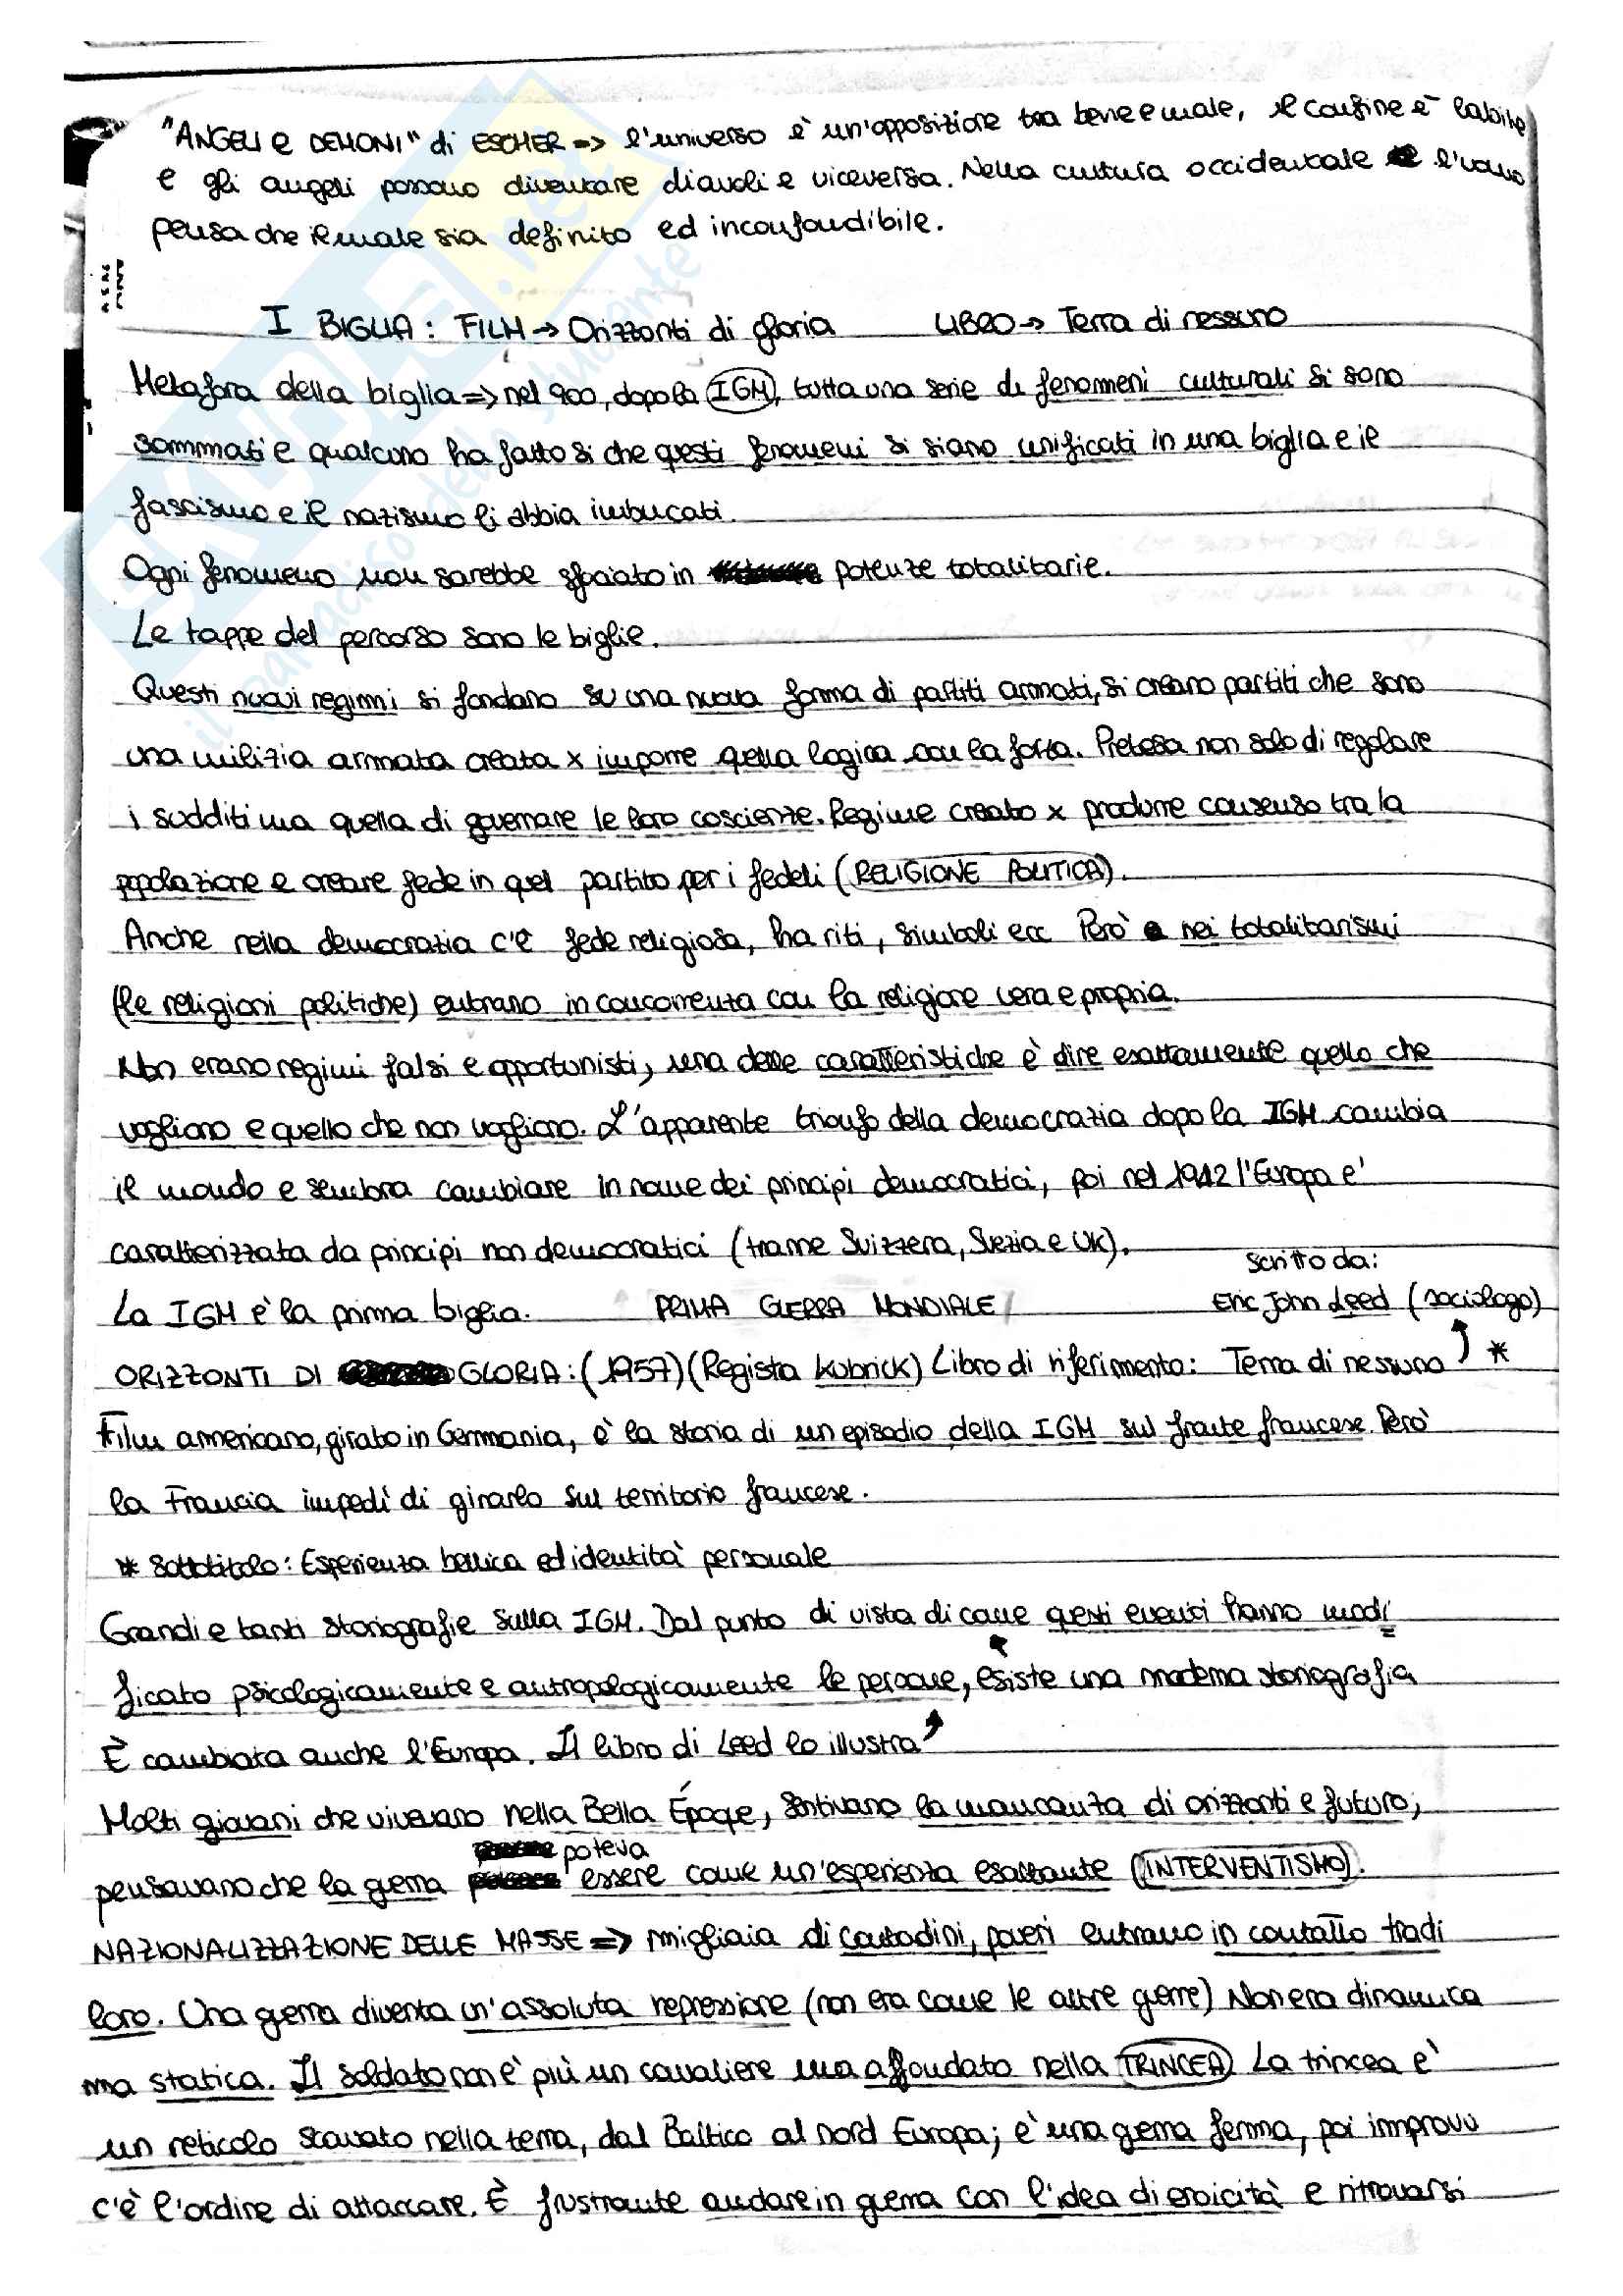 "ANGELI e DEMONI" di ESCHER => l'universo è un'opposizione tra bene e male, il confine è labile
e gli angeli possono diventare diavoli e viceversa. Nella cultura occidentale l'uomo
pensa che il male sia definito ed inconfondibile.
I BIGLIA: FILM -> Orizzonti di gloria LIBRO -> Terra di nessuno
Metafora della biglia => nel 900, dopo la IGM, tutta una serie di fenomeni culturali si sono
sommati e qualcuno ha fatto si che questi fenomeni si siano unificati in una biglia e il
fascismo e il nazismo li abbia imbucati.
Ogni fenomeno non sarebbe sfociato in potenze totalitarie.
Le tappe del percorso sono le biglie.
Questi nuovi regimi si fondano su una nuova forma di partiti armati, si creano partiti che sono
una milizia armata creata x imporre quella logica con la forza. Pretesa non solo di regolare
i sudditi ma quella di governare le loro coscienze. Regime creato x produrre consenso tra la
popolazione e creare fede in quel partito per i fedeli (RELIGIONE POLITICA).
Anche nella democrazia c'è fede religiosa, ha riti, simboli ecc Però nei totalitarismi
(le religioni politiche) entrano in concorrenza con la religione vera e propria.
Non erano regimi falsi e opportunisti, una delle caratteristiche è dire esattamente quello che
vogliono e quello che non vogliono. L'apparente trionfo della democrazia dopo la IGM cambia
il mondo e sembra cambiare in nome dei principi democratici, poi nel 1942 l'Europa e'
caratterizzata da principi non democratici (tranne Svizzera, Svezia e UK).
scritto da:
La IGM è la prima biglia. PRIMA GUERRA MONDIALE Eric John Leed (sociologo)
ORIZZONTI DI GLORIA: (1957) (Regista Kubrick) Libro di riferimento: Terra di nessuno *
Film americano, girato in Germania, è la storia di un episodio della IGM sul fronte francese. Però
la Francia impedì di girarlo sul territorio francese.
* Sottotitolo: Esperienza bellica ed identità personale
Grandi e tanti storiografie sulla IGM. Dal punto di vista di come questi eventi hanno modi
ficato psicologicamente e antropologicamente le persone, esiste una moderna storiografia
È cambiata anche l'Europa. Il libro di Leed lo illustra
Molti giovani che vivevano nella Bella Époque, sentivano la mancanza di orizzonti e futuro;
pensavano che la guerra poteva essere come un'esperienza esaltante (INTERVENTISMO).
NAZIONALIZZAZIONE DELLE MASSE => migliaia di contadini, poveri entrano in contatto tra di
loro. Una guerra diventa un'assoluta repressione (non era come le altre guerre) Non era dinamica
ma statica. Il soldato non è più un cavaliere ma affondato nella TRINCEA. La trincea e'
un reticolo scavato nella terra, dal Baltico al nord Europa; è una guerra ferma, poi improvv
c'è l'ordine di attaccare. È frustrante andare in guerra con l'idea di eroicità e ritrovarsi
SKUOLA.net
il paradiso dello studente